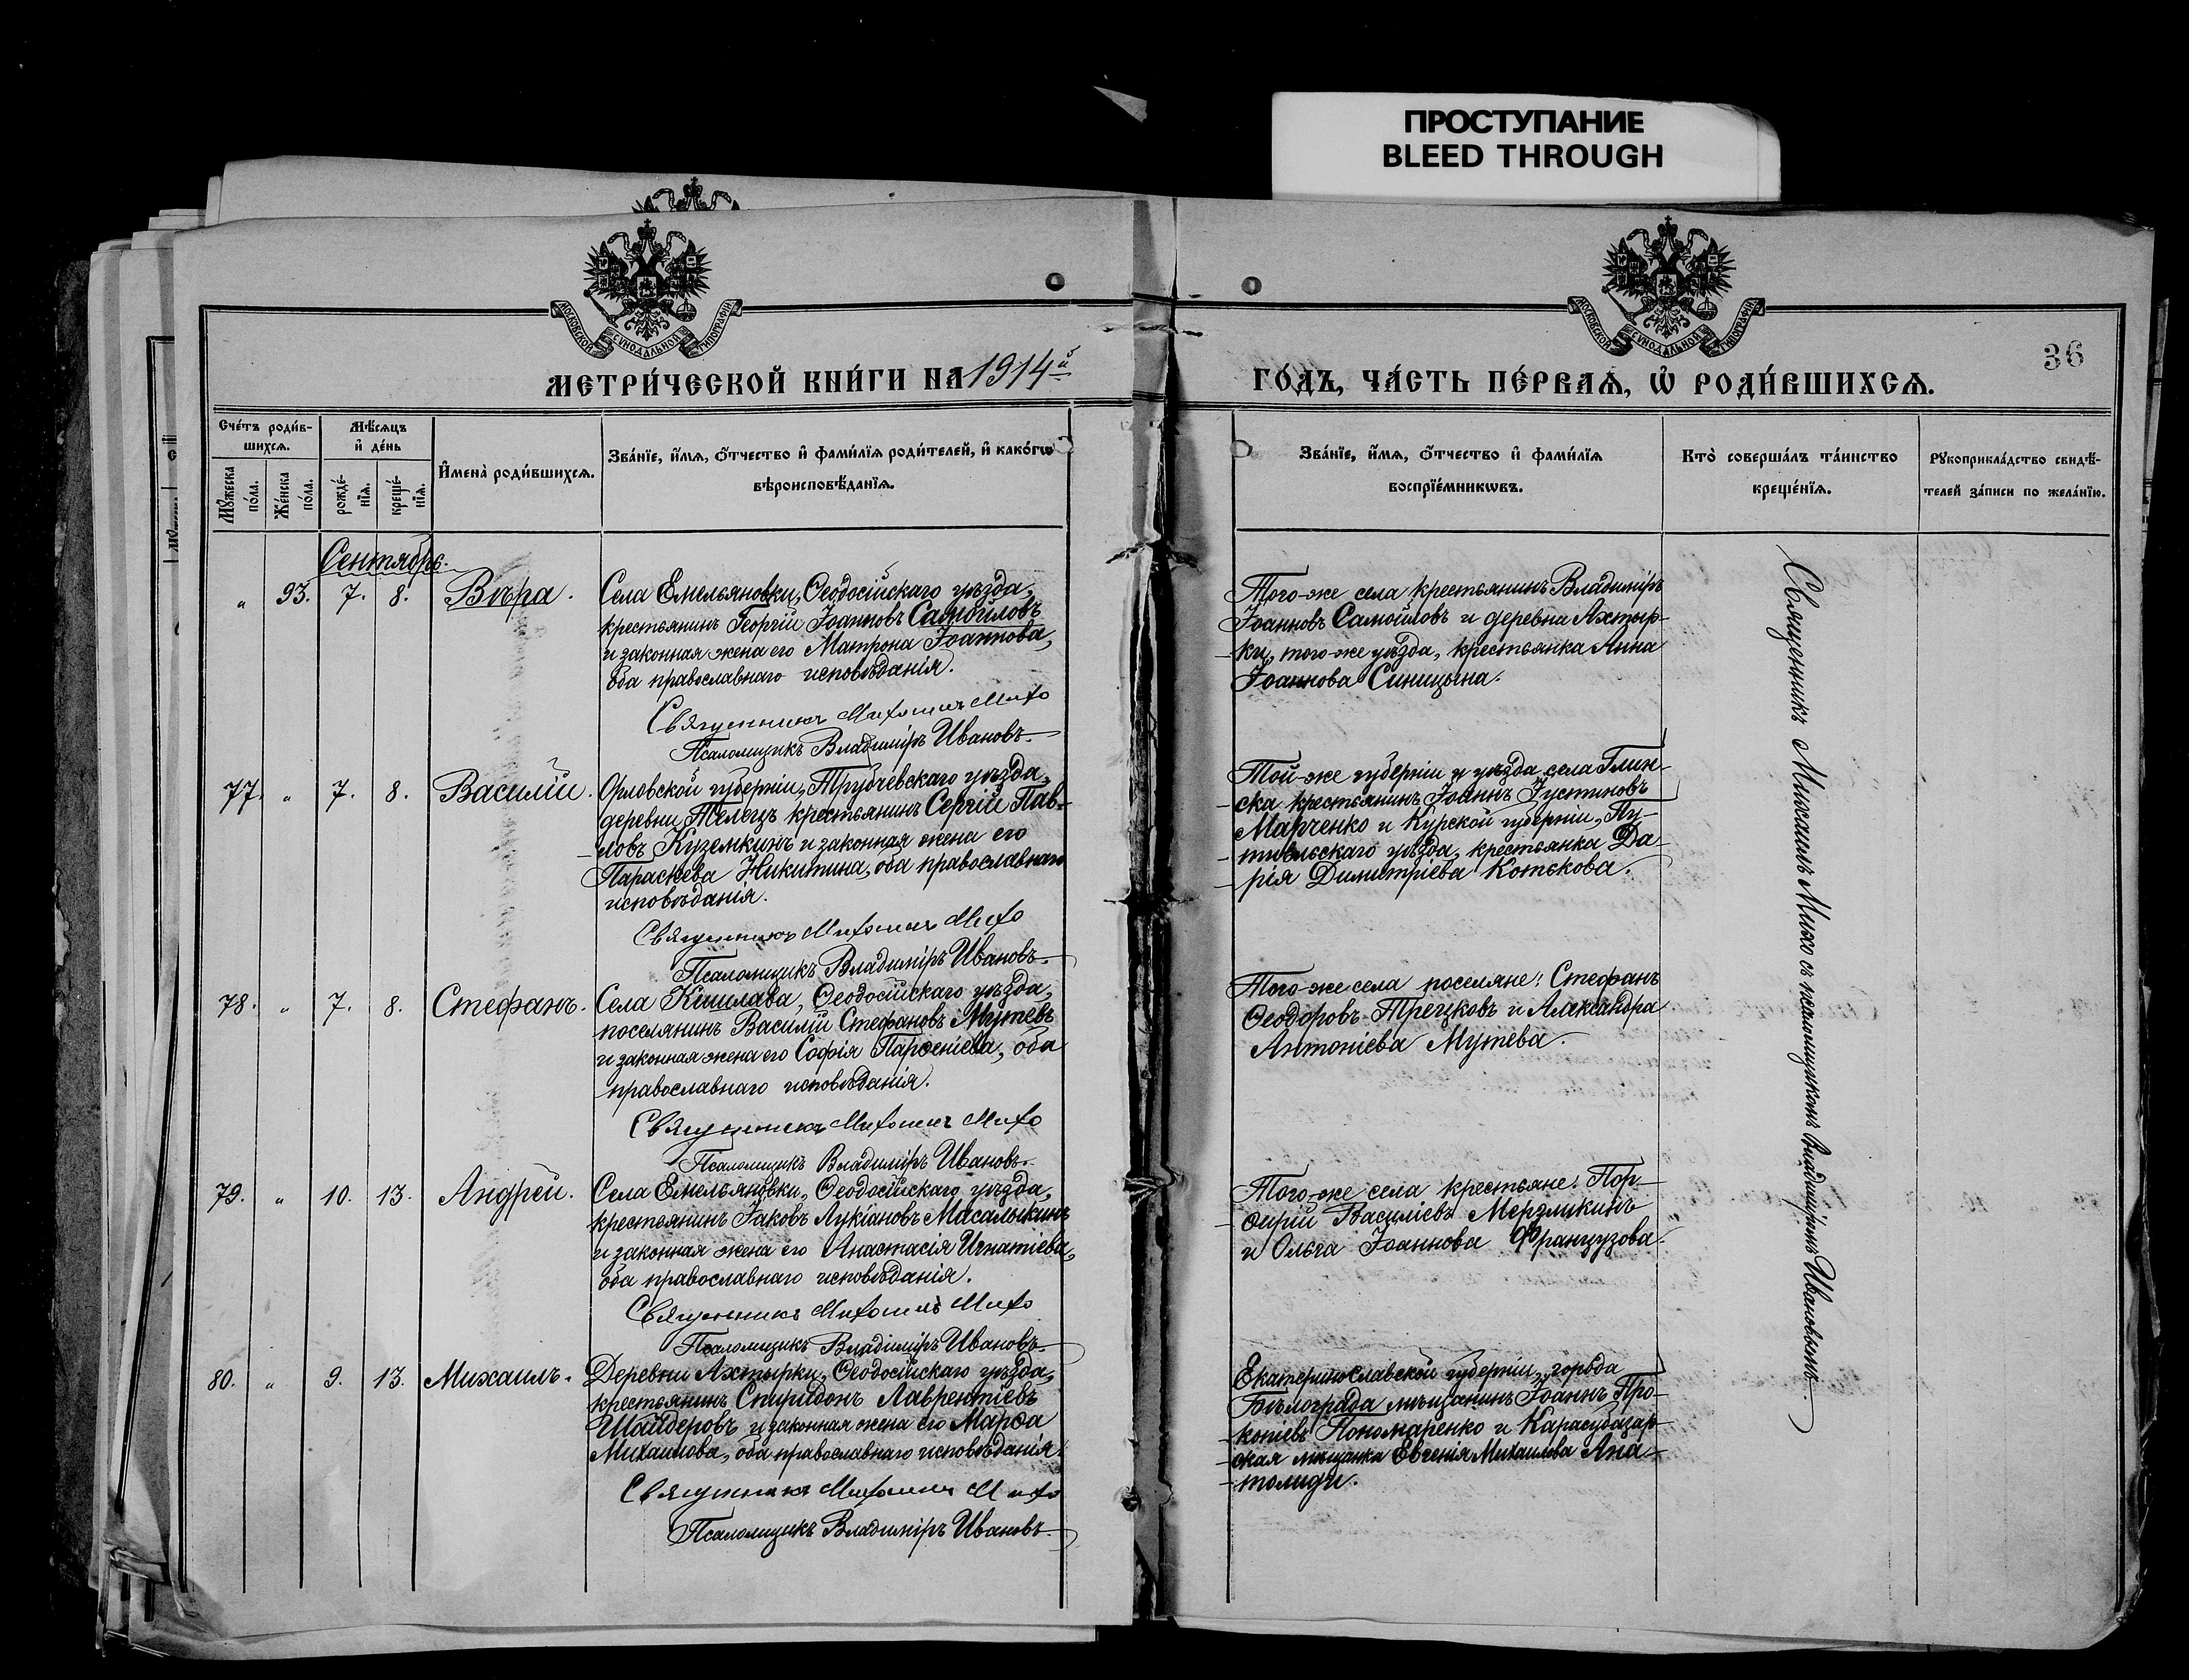 ПРОСТУПАНИЕ
BLEED THROUGH
МОСКОВСКОЙ СѴНОДАЛЬНОЙ ТИПОГРАФІИ
МОСКОВСКОЙ СѴНОДАЛЬНОЙ ТИПОГРАФІИ
36
МЕТРИ́ЧЕСКОЙ КНИ́ГИ НА 1914й
ГО́ДЪ, ЧА́СТЬ ПЕ́РВАѦ, Ѡ҆ РОДИ́ВШИХСѦ.
Сче́тъ роди́в-
шихсѧ.
Мꙋ́жеска
по́ла.
Же́нска
по́ла.
Мѣ́сѧцъ
и҆ де́нь
рожде́-
нїѧ.
креще́-
нїѧ.
И҆мена̀ роди́вшихсѧ.
Зва́нїе, и҆́мѧ, ѻ҆́тчество и҆ фами́лїѧ роди́телей, и҆ како́гѡ
вѣроисповѣ́данїѧ.
Зва́нїе, и҆́мѧ, ѻ҆́тчество и҆ фами́лїѧ
воспрїе́мникѡвъ.
Кто̀ соверша́лъ та́инство
креще́нїѧ.
Рꙋкоприкла́дство свидѣ́-
телей за́писи по жела́нїю.
Сентябрь.
„ 93. 7. 8. Вѣра.
Села Емельяновки, Ѳеодосійскаго уѣзда,
крестьянинъ Георгій Іоанновъ Самойловъ
и законная жена его Матрона Іоаннова,
оба православнаго исповѣданія.
Священникъ Михаилъ Михо
Псаломщикъ Владиміръ Ивановъ.
Того-же села крестьянинъ Владиміръ
Іоанновъ Самойловъ и деревни Ахтыр-
ки, того-же уѣзда, крестьянка Анна
Іоаннова Синицына.
77. „ 7. 8. Василій.
Орловской губерніи, Трубчевскаго уѣзда,
деревни Телецъ крестьянинъ Сергій Пав-
ловъ Куземкинъ и законная жена его
Параскева Никитина, оба православнаго
исповѣданія.
Священникъ Михаилъ Михо
Псаломщикъ Владиміръ Ивановъ.
Той-же губерніи и уѣзда, села Глин-
ска крестьянинъ Іоаннъ Іустиновъ
Марченко и Курской губерніи, Пу-
тивльскаго уѣзда, крестьянка Да-
рія Димитріева Котскова.
78. „ 7. 8. Стефанъ.
Села Кишлава, Ѳеодосійскаго уѣзда,
поселянинъ Василій Стефановъ Мутевъ
и законная жена его Софія Парѳеніева, оба
православнаго исповѣданія.
Священникъ Михаилъ Михо
Псаломщикъ Владиміръ Ивановъ.
Того-же села поселяне: Стефанъ
Ѳеодоровъ Трецковъ и Александра
Антоніева Мутева.
79. „ 10. 13. Андрей.
Села Емельяновки, Ѳеодосійскаго уѣзда,
крестьянинъ Іаковъ Лукіановъ Масалыкинъ
и законная жена его Анастасія Игнатіева,
оба православнаго исповѣданія.
Священникъ Михаилъ Михо
Псаломщикъ Владиміръ Ивановъ.
Того-же села крестьяне: Пор-
фирій Василіевъ Мерзликинъ
и Ольга Іоаннова Французова.
80. „ 9. 13. Михаилъ.
Деревни Ахтырки, Ѳеодосійскаго уѣзда,
крестьянинъ Спиридонъ Лаврентіевъ
Шайдеровъ и законная жена его Марѳа
Михаилова, оба православнаго исповѣданія.
Священникъ Михаилъ Михо
Псаломщикъ Владиміръ Ивановъ.
Екатеринославской губерніи, города
Бѣлограда мѣщанинъ Іоаннъ Про-
копіевъ Пономаренко и Карасубазар-
ская мѣщанка Евгенія Михаилова Ана-
толиди.
Священникъ Михаилъ Михо съ псаломщикомъ Владиміромъ Ивановымъ.